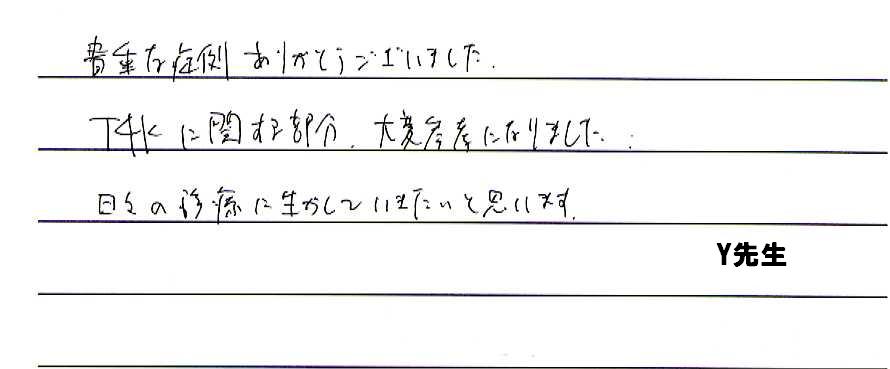 貴重な症例ありがとうございました.
T4Kに関する部分、大変参考になりました.
日々の診療に生かしていきたいと思います.
Y先生